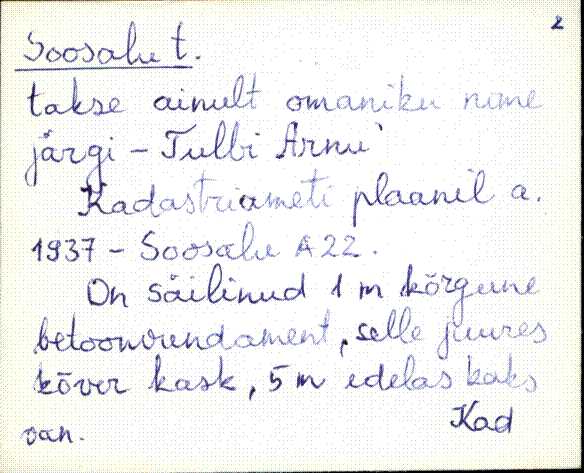 2
Soosalu t.
takse ainult omaniku nime
järgi - Tulbi Arnu'
Kadastriameti plaanil a.
1937 - Soosalu A 22.
On säilinud 1 m kõrgune
betoonvundament, selle juures
kõver kask, 5 m edelas kaks
Kad
van.